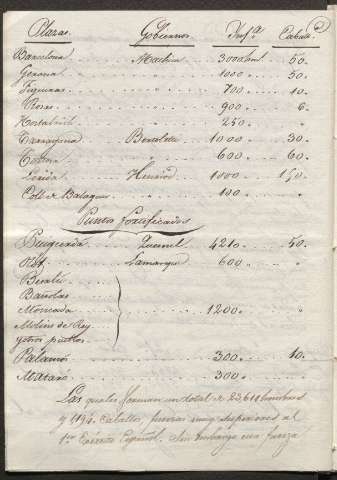 Plazas. Gobernores Inf.ª Caballª
Barcelona Mathieu 3000 hom.s 50.
Gerona " 1000. 50.
Figueras " 700. 10.
Rosas " 900. 6.
Hostalrich " 250. "
Tarragona Bertoletti 1000 30.
Tortosa " 600. 60.
Lerida Henriod 1000 150.
Coll de Balaguer " 100 "
Puntos fortificados
Puigcerdá 4210. 50.
Olot Lamarque 600.
Besalú
Bañolas
Moncada 1200.
Molins de Rey
y otros pueblos
Palamós 300. 10.
Mataró 300.
Las quales forman un total de 23.611 hombres
y 1194. Caballos, fuerzas muy superiores al
1.er Exército Español. Sin embargo esta fuerza